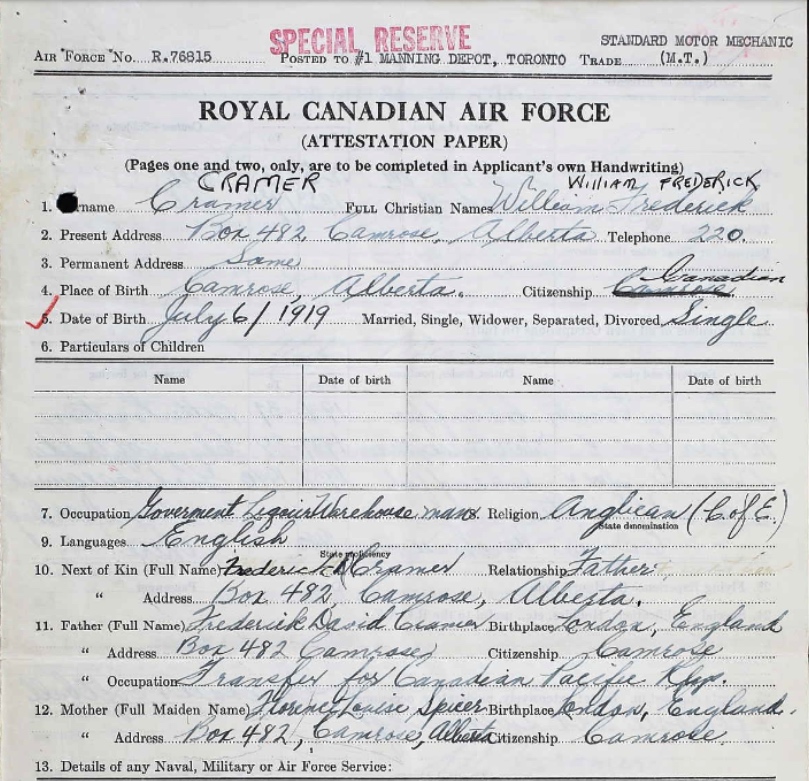 SPECIAL RESERVE
STANDARD MOTOR MECHANIC
AIR FORCE NO. R.76815 POSTED TO #1 MANNING DEPOT, TORONTO TRADE (M.T.)
ROYAL CANADIAN AIR FORCE
(ATTESTATION PAPER)
(Pages one and two, only, are to be completed in Applicant's own Handwriting)
CRAMER WILLIAM FREDERICK
1. name Cramer FULL Christian Names William Frederick
2. Present Address Box 482, Camrose, Alberta Telephone 220.
3. Permanent Address Same
Canadian
4. Place of Birth Camrose, Alberta. Citizenship Camrose
5. Date of Birth July 6/1919 Married, Single, Widower, Separated, Divorced Single
6. Particulars of Children
Name Date of birth Name Date of birth
7. Occupation Goverment Liquir Warehouse man 8. Religion Anglican (C of E.)
State denomination
9. Languages English
State proficiency
10. Next of Kin (Full Name) Frederick D Cramer Relationship Father
" Address Box 482, Camrose, Alberta.
11. Father (Full Name) Frederick David Cramer Birthplace London, England
" Address Box 482 Camrose, Citizenship Camrose
" Occupation Transfer for Canadian Pacific Rly.
12. Mother (Full Maiden Name) Florence Louise Spicer Birthplace London, England.
" Address Box 482, Camrose, Alberta Citizenship Camrose
13. Details of any Naval, Military or Air Force Service: